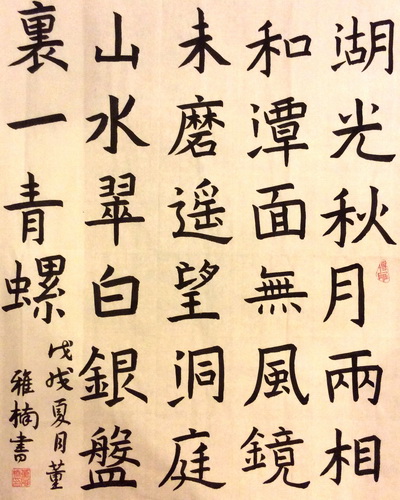 湖光秋月兩相
和潭面無風鏡
未磨遥望洞庭
山水翠白銀盤
裏一青螺
戊戌夏月董
雅楠書